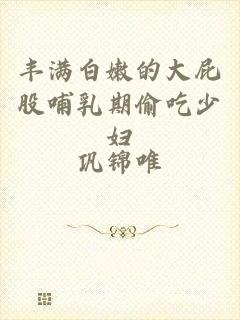 丰满白嫩的大屁
股哺乳期偷吃少
妇
巩锦唯